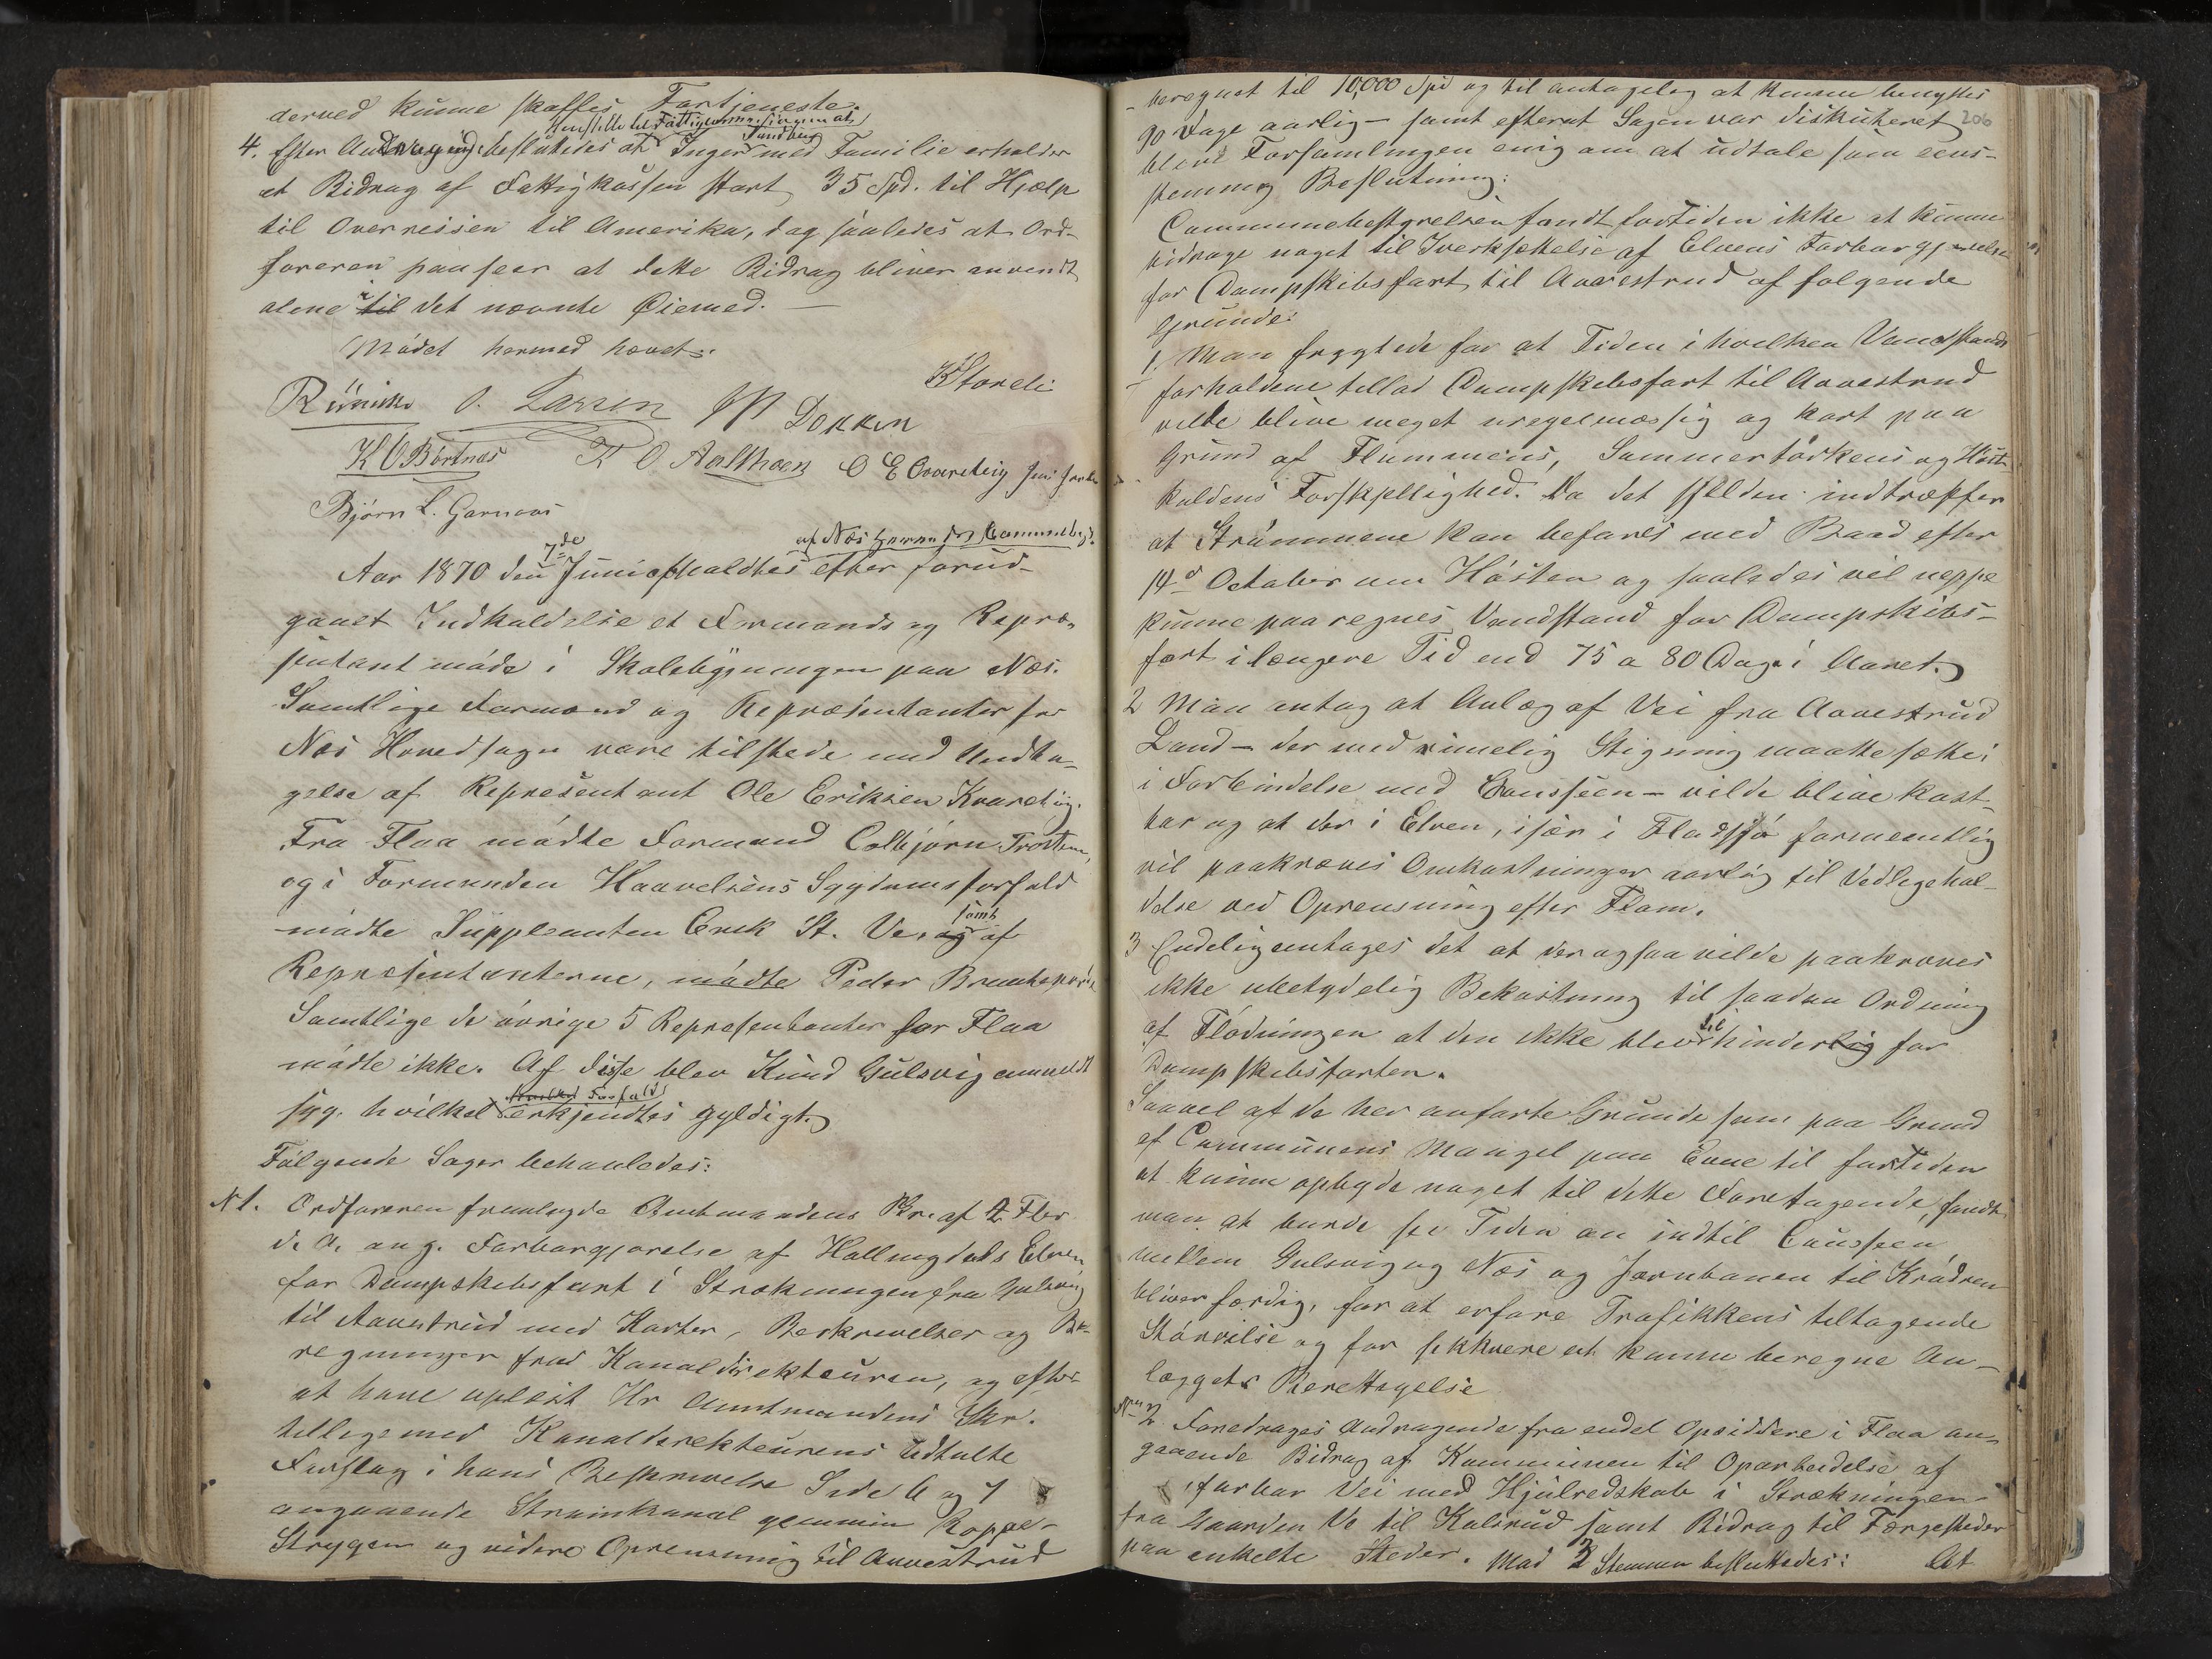 derved kunne skaffes Fortjeneste.
henstille til Fattigcommissionen at
4. Efter Andragende besluttedes at Inger Sundbrei med Familie erholder
et Bidrag af Fattigkassen stort 35 Spd. til Hjælp
til Overreisen til Amerika, dog saaledes at Ord-
føreren paaseer at dette Bidrag bliver anvendt
alene i til det nævnte Øiemed. —
Mødet hermed hævet.
K Storeli
O. Larsen
Dokken
K O Børtnes
Bjørn L. Garnaas
af Næs Commebest.
Aar 1870 den 7de Juni afholdtes efter forud-
gaaet Indkaldelse et Formands og Repræ-
sentantmøde i Skolebygningen paa Næs.
Samtlige Formænd og Repræsentanter for
Næs Hovedsogn vare tilstede med Undta-
gelse af Repræsentant Ole Eriksen Kvarteig.
Fra Flaa mødte Formand Colbjørn Trostem,
og i Formanden Haavelsens Sygdomsforfald
mødte Suppleanten Erik St. Ve, og samt af
Repræsentanterne, mødte Peder
Samtlige de øvrige 5 Repræsentanter for Flaa
mødte ikke. Af disse blev Knud Gulsvig anmeldt
syg. hvilket Forfald erkjendtes gyldigt.
Følgende Sager behandledes:
N 1. Ordføreren fremlagde Amtmandens Skr. af 2 Febr
d. A. ang. Farbargjørelse af Hallingdals Elven
for Dampskibsfart i Strækningen fra Gulsvig
til Aavestrud med Karter, Beskrivelser og Be-
regninger fra Kanaldirekteuren, og efter
at have oplæst Hr Amtmandens Skr.
tilligemed Kanaldirekteurens udtalte
Forslag i hans Beskrivelse Side 6 og 7
angaaende Strømkanal gjennem Roppe-
Strygen og videre Oprensning til Aavestrud
206
- beregnet til 10,000 Spd og til antagelig at kunne benyttes
90 Dage aarlig — samt efterat Sagen var diskuteret
blev Forsamlingen enig om at udtale som eens-
stemmig Beslutning:
Communebestyrelsen fandt fortiden ikke at kunne
bidrage noget til Iverksættelse af Elvens Farbargjørelse
for Dampskibsfart til Aavestrud af følgende
Grunde:
1. Man frygtede for at Tiden i hvilken Vandstands
forholdene tillod Dampskibsfart til Aavestrud
vilde blive meget uregelmæssig og kort paa
Grund af Flommens, Sommertørkens og Høst-
kuldens Forskjellighed. Da det sjelden indtræffer
at Strømmene kan befares med Baad efter
14d October om Høsten og saaledes vil neppe
kunne paaregnes Vandstand for Dampskibs-
fart i længere Tid end 75 a 80 Dage i Aaret.
2 Man antog at Anlæg af Vei fra Aavestrud
Land — der med rimelig Stigning maatte sættes
i Forbindelse med Chausseen — vilde blive kost-
bar og at der i Elven, især i Fladsjø formeentlig
vil paakræves Omkostninger aarlig til Vedligehol-
delse ved Oprensning efter Flom.
3 Endelig antages det at der ogsaa vilde paakræves
ikke ubetydelig Bekostning til saadan Ordning
af Flødningen at den ikke blev til hinderlig for
Dampskibsfarten.
Saavel af de her anførte Grunde som paa Grund
af Communens Mangel paa Evne til fortiden
at kunne opbyde noget til dette Foretagende, fandt
man at burde see Tiden an indtil Causseen
mellem Gulsvig og Næs og Jernbanen til Krødren
bliver færdig, for at erfare Trafikkens tiltagende
Størrelse og for sikkrere at kunne beregne An-
læggets Berettigelse
No 2 Foredrages Andragende fra endel Opsiddere i Flaa an-
gaaende Bidrag af Kommunen til Oparbeidelse af
farbar Vei med Hjulredskab i Strækningen
fra Gaarden Ve til Kolsrud samt Bidrag til Færgesteder
paa enkelte Steder. Mod 3 Stemmer besluttedes: Et